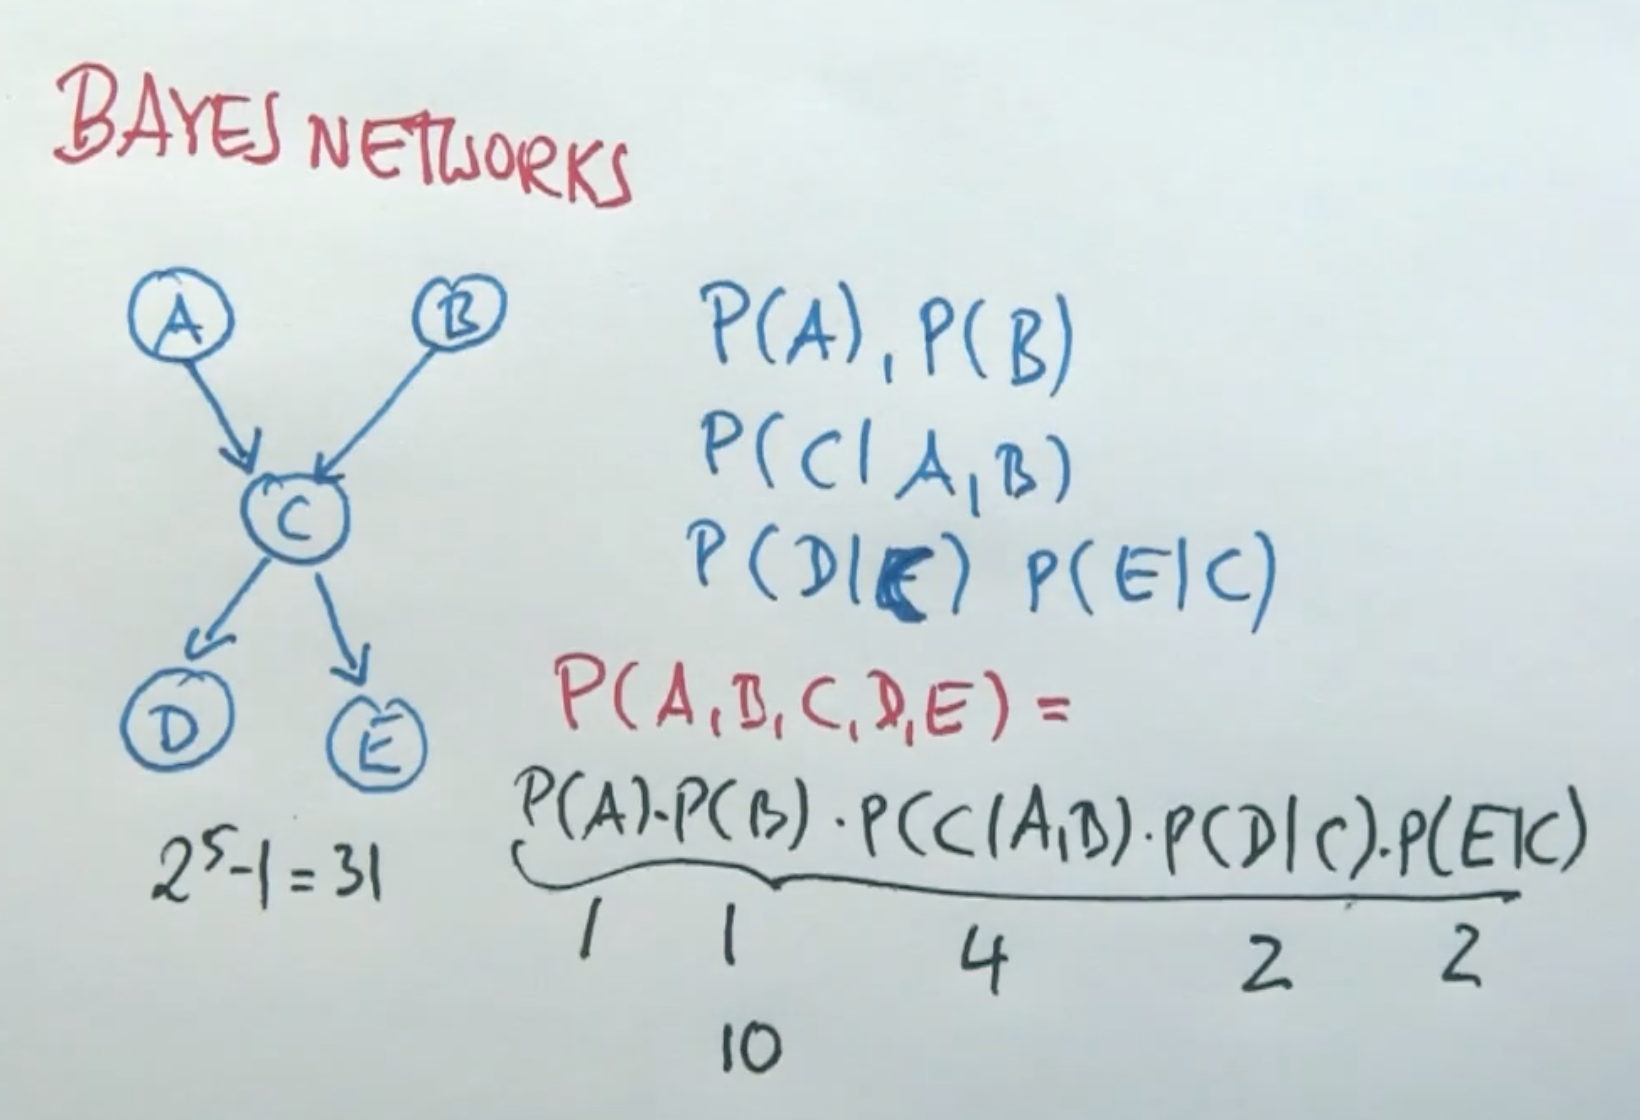 BAYES NETWORKS
A B
C
D E
P(A), P(B)
P(C|A,B)
P(D|C) P(E|C)
P(A,B,C,D,E) =
P(A)·P(B)·P(C|A,B)·P(D|C)·P(E|C)
2⁵-1=31
1 1 4 2 2
10